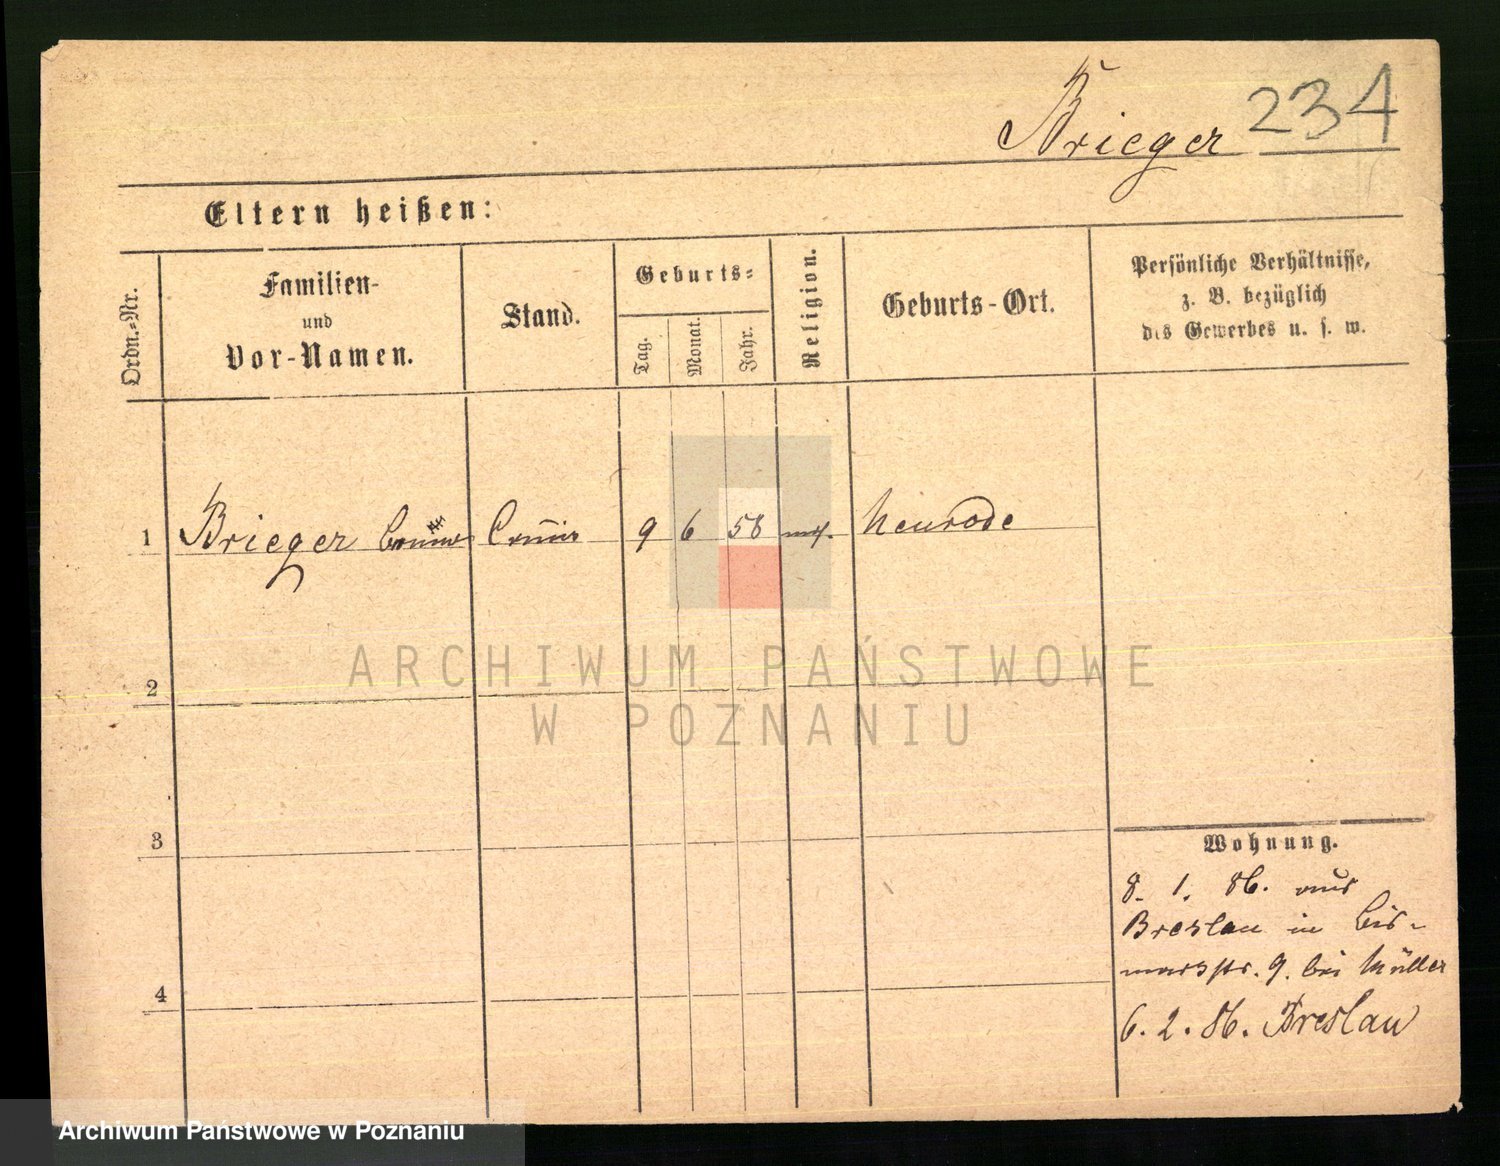 Brieger 234
Eltern heißen:
Ordn.=Nr.
Familien-
und
Vor-Namen.
Stand.
Geburts=
Tag.
Monat.
Jahr.
Religion.
Geburts-Ort.
Persönliche Verhältnisse,
z. B. bezüglich
des Gewerbes u. s. w.
1 Brieger Commis 9 6 58 mos. Neurode
2
3
4
Wohnung.
8. 1. 86. aus
Breslau in Bis-
markstr. 9. bei Müller
6. 2. 86. Breslau
ARCHIWUM PAŃSTWOWE
W POZNANIU
Archiwum Państwowe w Poznaniu